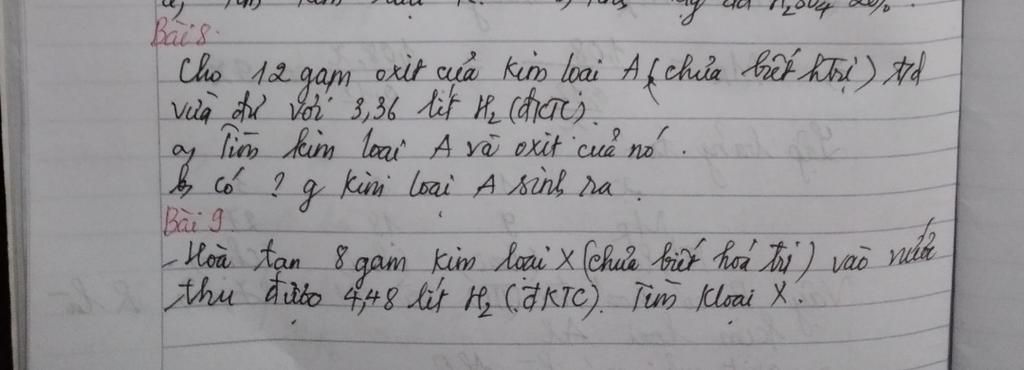 H2SO4 20%.
Bài 8.
Cho 12 gam oxit của kim loại A (chưa biết htrị) t/d
vừa đủ với 3,36 lít H2 (đKTC).
a, Tìm kim loại A và oxit của nó.
b, có ? g kim loại A sinh ra.
Bài 9
- Hoà tan 8 gam kim loại X (chưa biết hoá trị) vào nước
thu được 4,48 lít H2 (đKTC). Tìm kloại X.